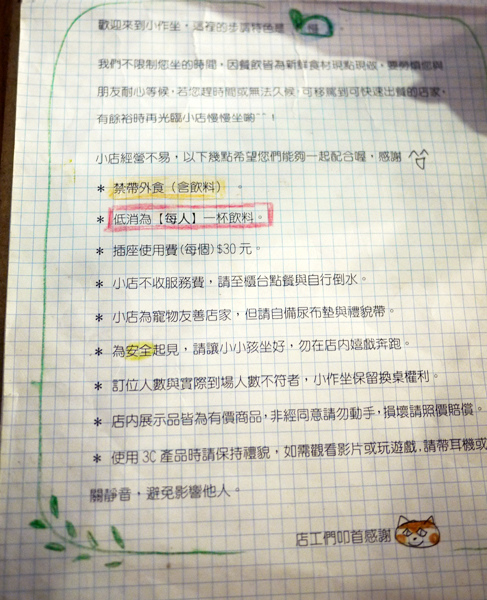 歡迎來到小作坐，這裡的步調特色是 慢
我們不限制您坐的時間，因餐飲皆為新鮮食材現點現做，要勞煩您與
朋友耐心等候，若您趕時間或無法久候，可移駕到可快速出餐的店家，
有餘裕時再光臨小店慢慢坐喲~~!
小店經營不易，以下幾點希望您們能夠一起配合喔，感謝
* 禁帶外食（含飲料）
* 低消為【每人】一杯飲料。
* 插座使用費(每個)$30元。
* 小店不收服務費，請至櫃台點餐與自行倒水。
* 小店為寵物友善店家，但請自備尿布墊與禮貌帶。
* 為安全起見，請讓小小孩坐好，勿在店內嬉戲奔跑。
* 訂位人數與實際到場人數不符者，小作坐保留換桌權利。
* 店內展示品皆為有價商品，非經同意請勿動手，損壞請照價賠償。
* 使用3C產品時請保持禮貌，如需觀看影片或玩遊戲,請帶耳機或
關靜音，避免影響他人。
店工們叩首感謝